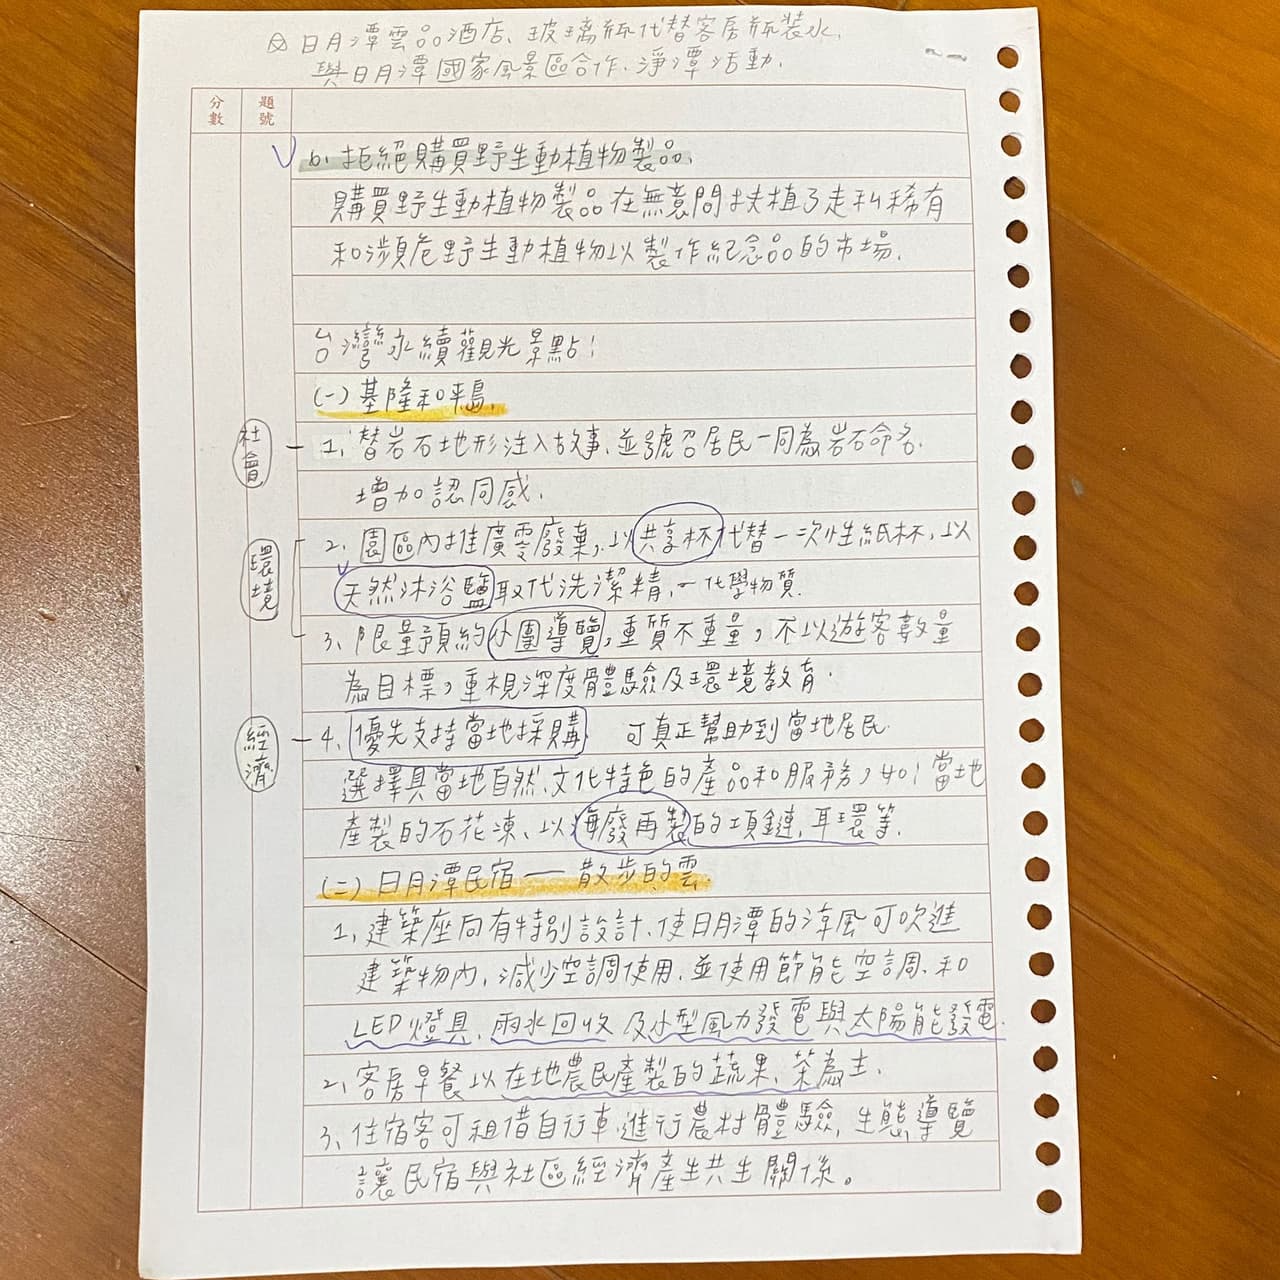 日月潭雲品酒店、玻璃瓶代替客房瓶裝水,
與日月潭國家風景區合作、淨潭活動.
分數
題號
6. 拒絕購買野生動植物製品.
購買野生動植物製品在無意間扶植了走私稀有
和瀕危野生動植物以製作紀念品的市場.
台灣永續觀光景點:
(一) 基隆和平島.
社會
1. 替岩石地形注入故事、並號召居民一同為岩石命名.
增加認同感.
環境
2. 園區內推廣零廢棄, 以共享杯代替一次性紙杯, 以
天然沐浴鹽取代洗潔精, 化學物質.
3. 限量預約小團導覽, 重質不重量, 不以遊客數量
為目標, 重視深度體驗及環境教育.
經濟
4. 優先支持當地採購 可真正幫助到當地居民.
選擇具當地自然、文化特色的產品和服務, 如: 當地
產製的石花凍、以海廢再製的項鏈、耳環等.
(二) 日月潭民宿 — 散步的雲.
1. 建築座向有特別設計、使日月潭的涼風可吹進
建築物內, 減少空調使用、並使用節能空調、和
LED燈具、雨水回收及小型風力發電與太陽能發電.
2. 客房早餐以在地農民產製的蔬果、茶為主.
3. 住宿客可租借自行車、進行農村體驗、生態導覽
讓民宿與社區經濟產生共生關係。